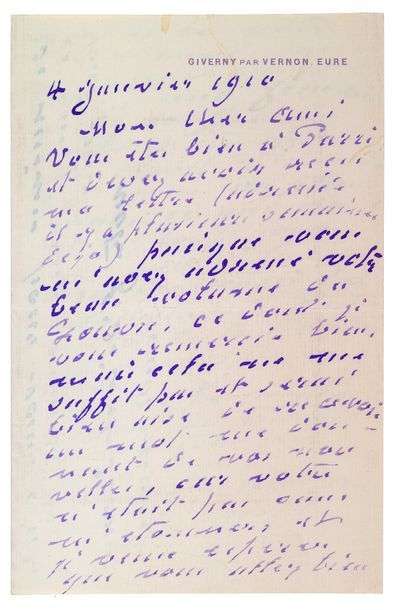 GIVERNY PAR VERNON. EURE
4 janvier 1910
Mon cher ami
Vous êtes bien à Paris
et devez avoir reçu
ma lettre (adressée
il y a plusieurs semaines
déjà) puisque vous
m'avez adressé votre
beau volume du
Louvre, ce dont je
vous remercie bien,
mais cela ne me
suffit pas et serai
bien aise de recevoir
un mot me don-
nant de vos nou
velles, car votre
n'était pas sans
m'étonner et
je veux espérer
que vous allez bien